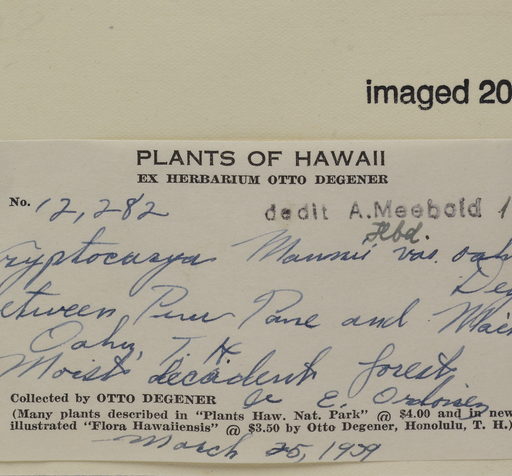 imaged 20
PLANTS OF HAWAII
EX HERBARIUM OTTO DEGENER
No. 12,282
dedit A. Meebold 1
Hbd.
ryptocarya Mannii var. oah
Deg
etween Puu Pane and
Oahu, T. H.
Moist decident forest
Collected by OTTO DEGENER & E. Ordonez
(Many plants described in "Plants Haw. Nat. Park" @ $4.00 and in new
illustrated "Flora Hawaiiensis" @ $3.50 by Otto Degener, Honolulu, T. H.)
March 25, 1939